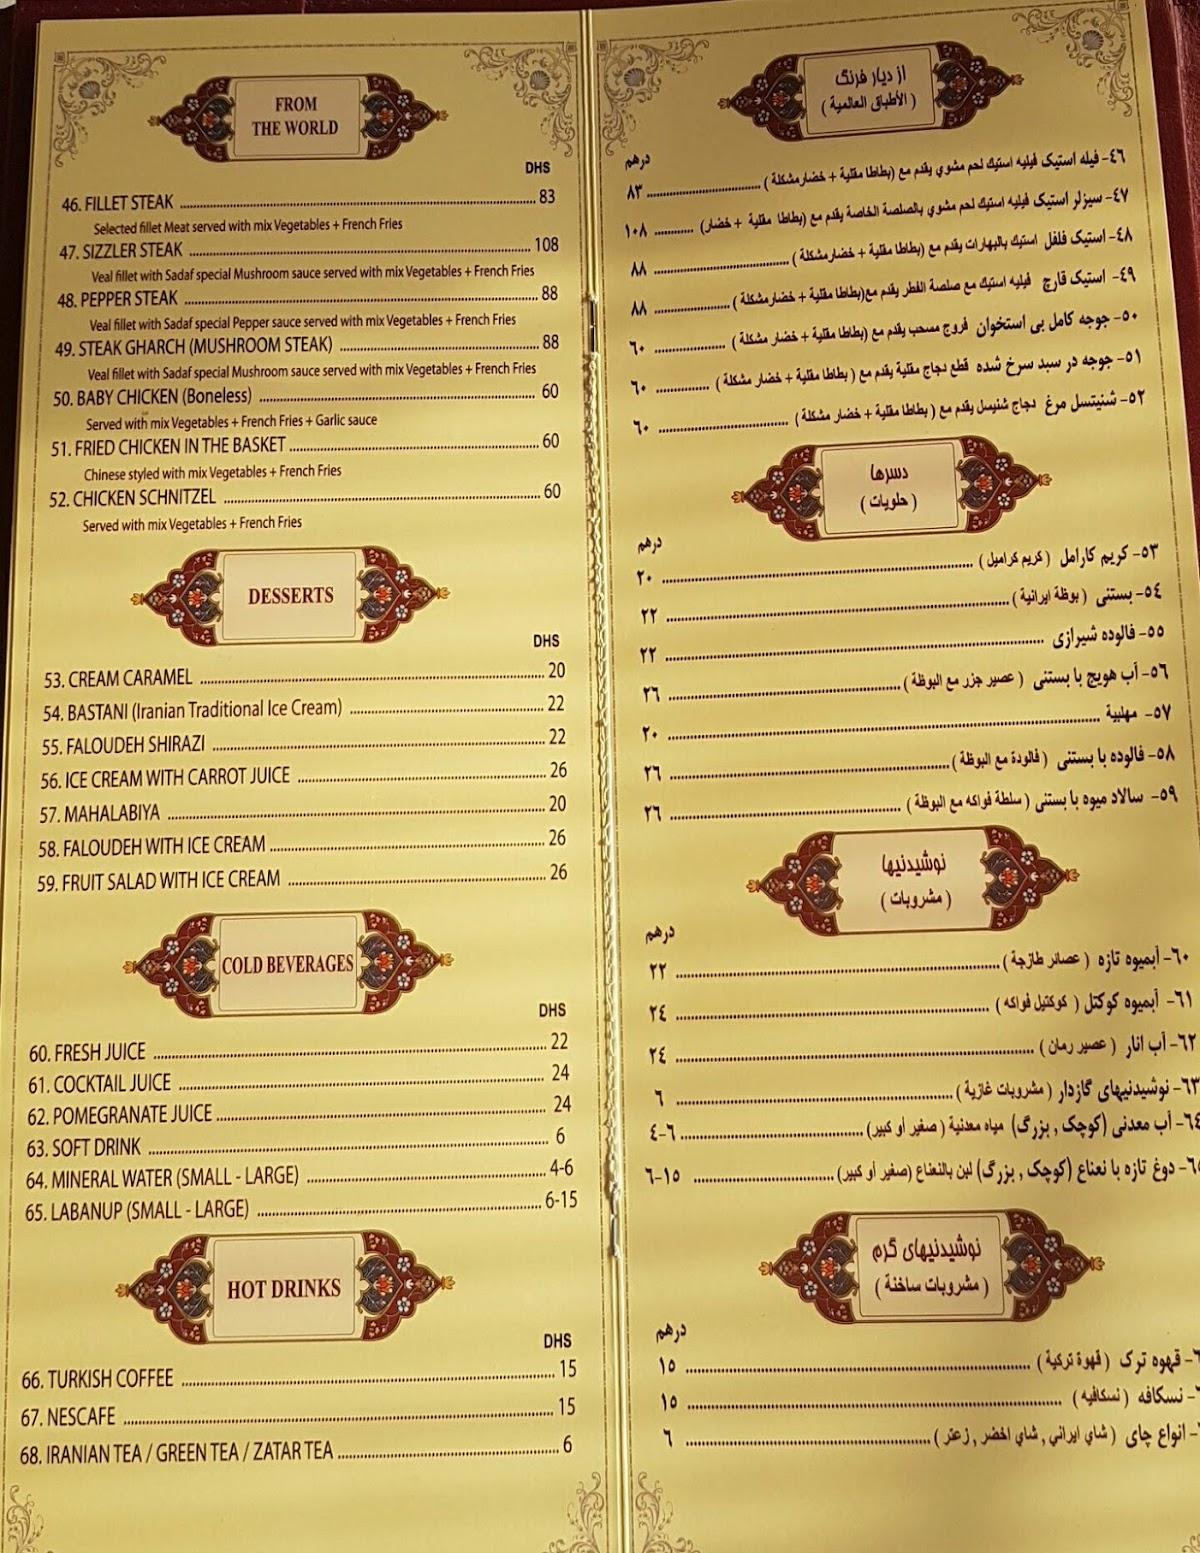 FROM
THE WORLD
DHS
46. FILLET STEAK 83
Selected fillet Meat served with mix Vegetables + French Fries
47. SIZZLER STEAK 108
Veal fillet with Sadaf special Mushroom sauce served with mix Vegetables + French Fries
48. PEPPER STEAK 88
Veal fillet with Sadaf special Pepper sauce served with mix Vegetables + French Fries
49. STEAK GHARCH (MUSHROOM STEAK) 88
Veal fillet with Sadaf special Mushroom sauce served with mix Vegetables + French Fries
50. BABY CHICKEN (Boneless) 60
Served with mix Vegetables + French Fries + Garlic sauce
51. FRIED CHICKEN IN THE BASKET 60
Chinese styled with mix Vegetables + French Fries
52. CHICKEN SCHNITZEL 60
Served with mix Vegetables + French Fries
DESSERTS
DHS
53. CREAM CARAMEL 20
54. BASTANI (Iranian Traditional Ice Cream) 22
55. FALOUDEH SHIRAZI 22
56. ICE CREAM WITH CARROT JUICE 26
57. MAHALABIYA 20
58. FALOUDEH WITH ICE CREAM 26
59. FRUIT SALAD WITH ICE CREAM 26
COLD BEVERAGES
DHS
60. FRESH JUICE 22
61. COCKTAIL JUICE 24
62. POMEGRANATE JUICE 24
63. SOFT DRINK 6
64. MINERAL WATER (SMALL - LARGE) 4-6
65. LABANUP (SMALL - LARGE) 6-15
HOT DRINKS
DHS
66. TURKISH COFFEE 15
67. NESCAFE 15
68. IRANIAN TEA / GREEN TEA / ZATAR TEA 6
از دیار فرنگ
( الأطباق العالمية )
درهم
٤٦- فیله استیک فيليه استيك لحم مشوي يقدم مع (بطاطا مقلية + خضارمشكلة ) ٨٣
٤٧- سیزلر استیک فيليه استيك لحم مشوي بالصلصة الخاصة يقدم مع (بطاطا مقلية + خضار) ١٠٨
٤٨- استیک فلفل استيك بالبهارات يقدم مع (بطاطا مقلية + خضارمشكلة ) ٨٨
٤٩- استیک قارچ فيليه استيك مع صلصة الفطر يقدم مع(بطاطا مقلية + خضارمشكلة ) ٨٨
٥٠- جوجه کامل بی استخوان فروج مسحب يقدم مع (بطاطا مقلية + خضار مشكلة ) ٦٠
٥١- جوجه در سبد سرخ شده قطع دجاج مقلية يقدم مع ( بطاطا مقلية + خضار مشكلة ) ٦٠
٥٢- شنیتسل مرغ دجاج شنيسل يقدم مع ( بطاطا مقلية + خضار مشكلة ) ٦٠
دسرها
( حلويات )
درهم
٥٣- کریم کارامل ( كريم كراميل ) ٢٠
٥٤- بستنی ( بوظة ايرانية ) ٢٢
٥٥- فالوده شیرازی ٢٢
٥٦- آب هویج با بستنی ( عصير جزر مع البوظة ) ٢٦
٥٧- مهلبية ٢٠
٥٨- فالوده با بستنی ( فالودة مع البوظة ) ٢٦
٥٩- سالاد میوه با بستنی ( سلطة فواكه مع البوظة ) ٢٦
نوشیدنیها
( مشروبات )
درهم
٦٠- آبمیوه تازه ( عصائر طازجة ) ٢٢
٦١- آبمیوه کوکتل ( كوكتيل فواكه ) ٢٤
٦٢- آب انار ( عصير رمان ) ٢٤
٦٣- نوشیدنیهای گازدار ( مشروبات غازية ) ٦
٦٤- آب معدنی (کوچک , بزرگ) مياه معدنية ( صغير أو كبير) ٤-٦
دوغ تازه با نعناع (کوچک , بزرگ) لبن بالنعناع (صغير أو كبير) ٦-١٥
نوشیدنیهای گرم
( مشروبات ساخنة )
درهم
- قهوه ترک ( قهوة تركية ) ١٥
- نسکافه ( نسكافيه ) ١٥
- انواع چای ( شاي ايراني , شاي اخضر , زعتر ) ٦